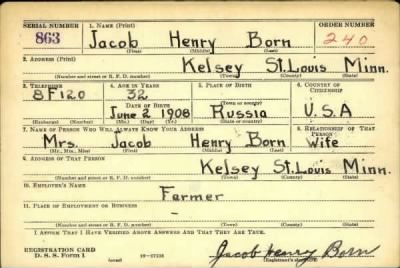 SERIAL NUMBER 1. NAME (Print) ORDER NUMBER
863 Jacob Henry Born 240
(First) (Middle) (Last)
2. ADDRESS (Print)
Kelsey St. Louis Minn.
(Number and street or R. F. D. number) (Town) (County) (State)
3. TELEPHONE 4. AGE IN YEARS 5. PLACE OF BIRTH 6. COUNTRY OF CITIZENSHIP
8F120 32
DATE OF BIRTH (Town or county)
June 2 1908 Russia U.S.A
(Exchange) (Number) (Mo.) (Day) (Yr.) (State or country)
7. NAME OF PERSON WHO WILL ALWAYS KNOW YOUR ADDRESS 8. RELATIONSHIP OF THAT PERSON
Mrs. Jacob Henry Born Wife
(Mr., Mrs., Miss) (First) (Middle) (Last)
9. ADDRESS OF THAT PERSON
Kelsey St. Louis Minn.
(Number and street or R. F. D. number) (Town) (County) (State)
10. EMPLOYER'S NAME
Farmer
11. PLACE OF EMPLOYMENT OR BUSINESS
-
(Number and street or R. F. D. number) (Town) (County) (State)
I AFFIRM THAT I HAVE VERIFIED ABOVE ANSWERS AND THAT THEY ARE TRUE.
REGISTRATION CARD Jacob Henry Born
D. S. S. Form 1 (over) (Registrant's signature)